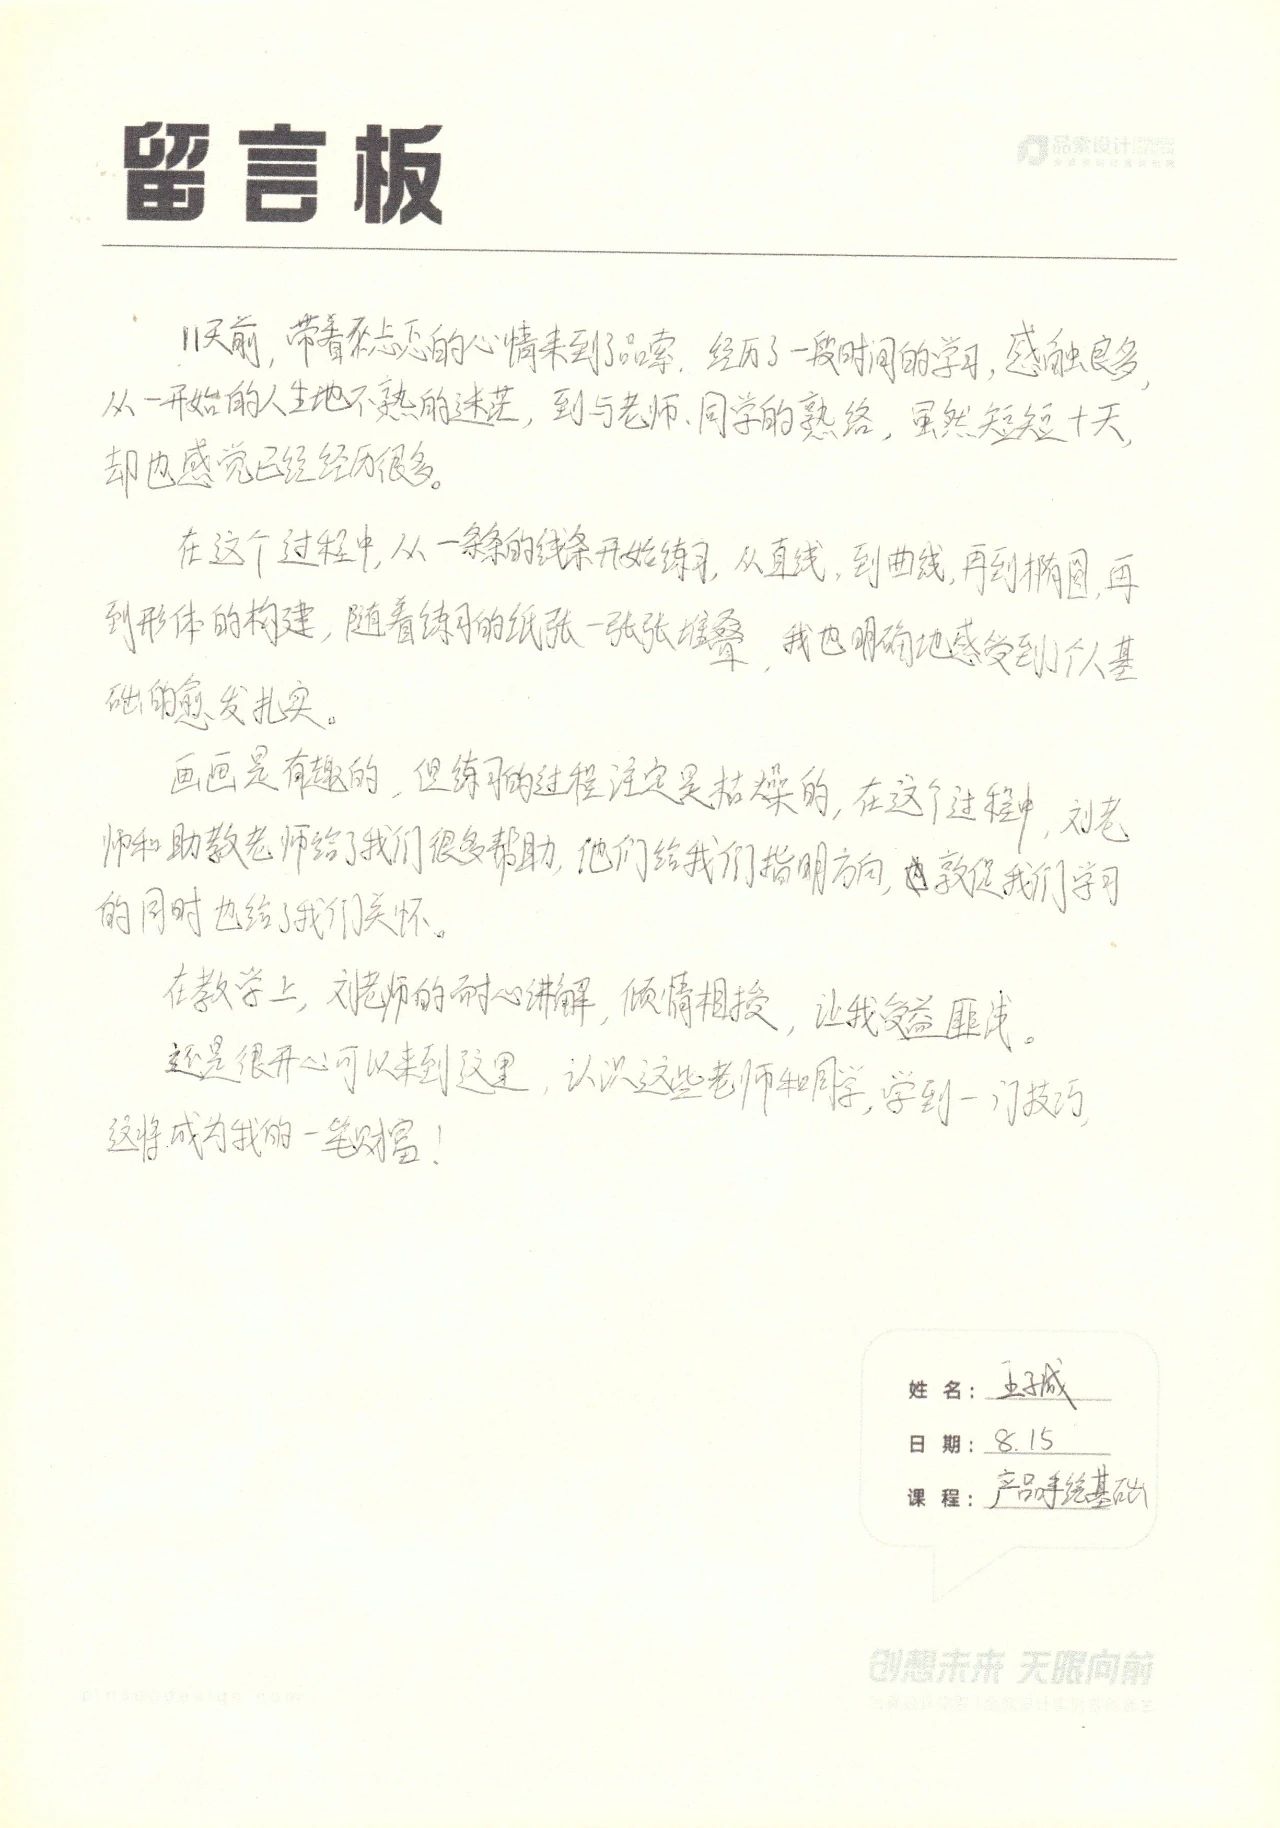 留言板
11天前，带着忐忑的心情来到了品索．经历了一段时间的学习，感触良多，
从一开始的人生地不熟的迷茫，到与老师、同学的熟络，虽然短短十天，
却也感觉已经经历很多。
在这个过程中，从一条条的线条开始练习，从直线，到曲线，再到椭圆，再
到形体的构建，随着练习的纸张一张张堆叠，我也明确地感受到个人基
础的愈发扎实。
画画是有趣的，但练习的过程注定是枯燥的，在这个过程中，刘老
师和助教老师给了我们很多帮助，他们给我们指明方向，敦促我们学习
的同时也给了我们关怀。
在教学上，刘老师的耐心讲解，倾情相授，让我受益匪浅。
还是很开心可以来到这里，认识这些老师和同学，学到一门技巧，
这将成为我的一笔财富！
姓 名：王子成
日 期：8.15
课 程：产品手绘基础